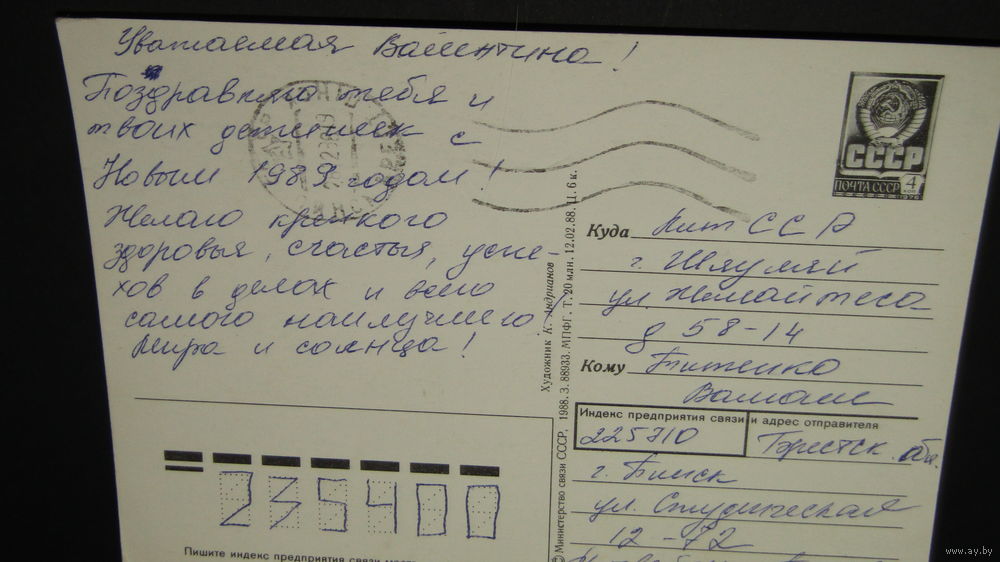 Уважаемая Валентина!
Поздравляю тебя и
твоих детишек с
Новым 1989 годом!
Желаю крепкого
здоровья, счастья, успе-
хов в делах и всего
самого наилучшего,
Мира и солнца!
СССР
ПОЧТА СССР 4 коп
Куда Лит ССР
г. Шяуляй
ул. Жемайтеса
д 58-14
Кому
Индекс предприятия связи и адрес отправителя
225710 Брестск. обл.
г. Пинск
ул. Студенческая
12-72
235400
Пишите индекс предприятия связи
Художник К. Андрианов
© Министерство связи СССР, 1988. З. 88933. МПФГ. Т. 20 млн. 12.02.88. Ц. 6 к.
www.ay.by